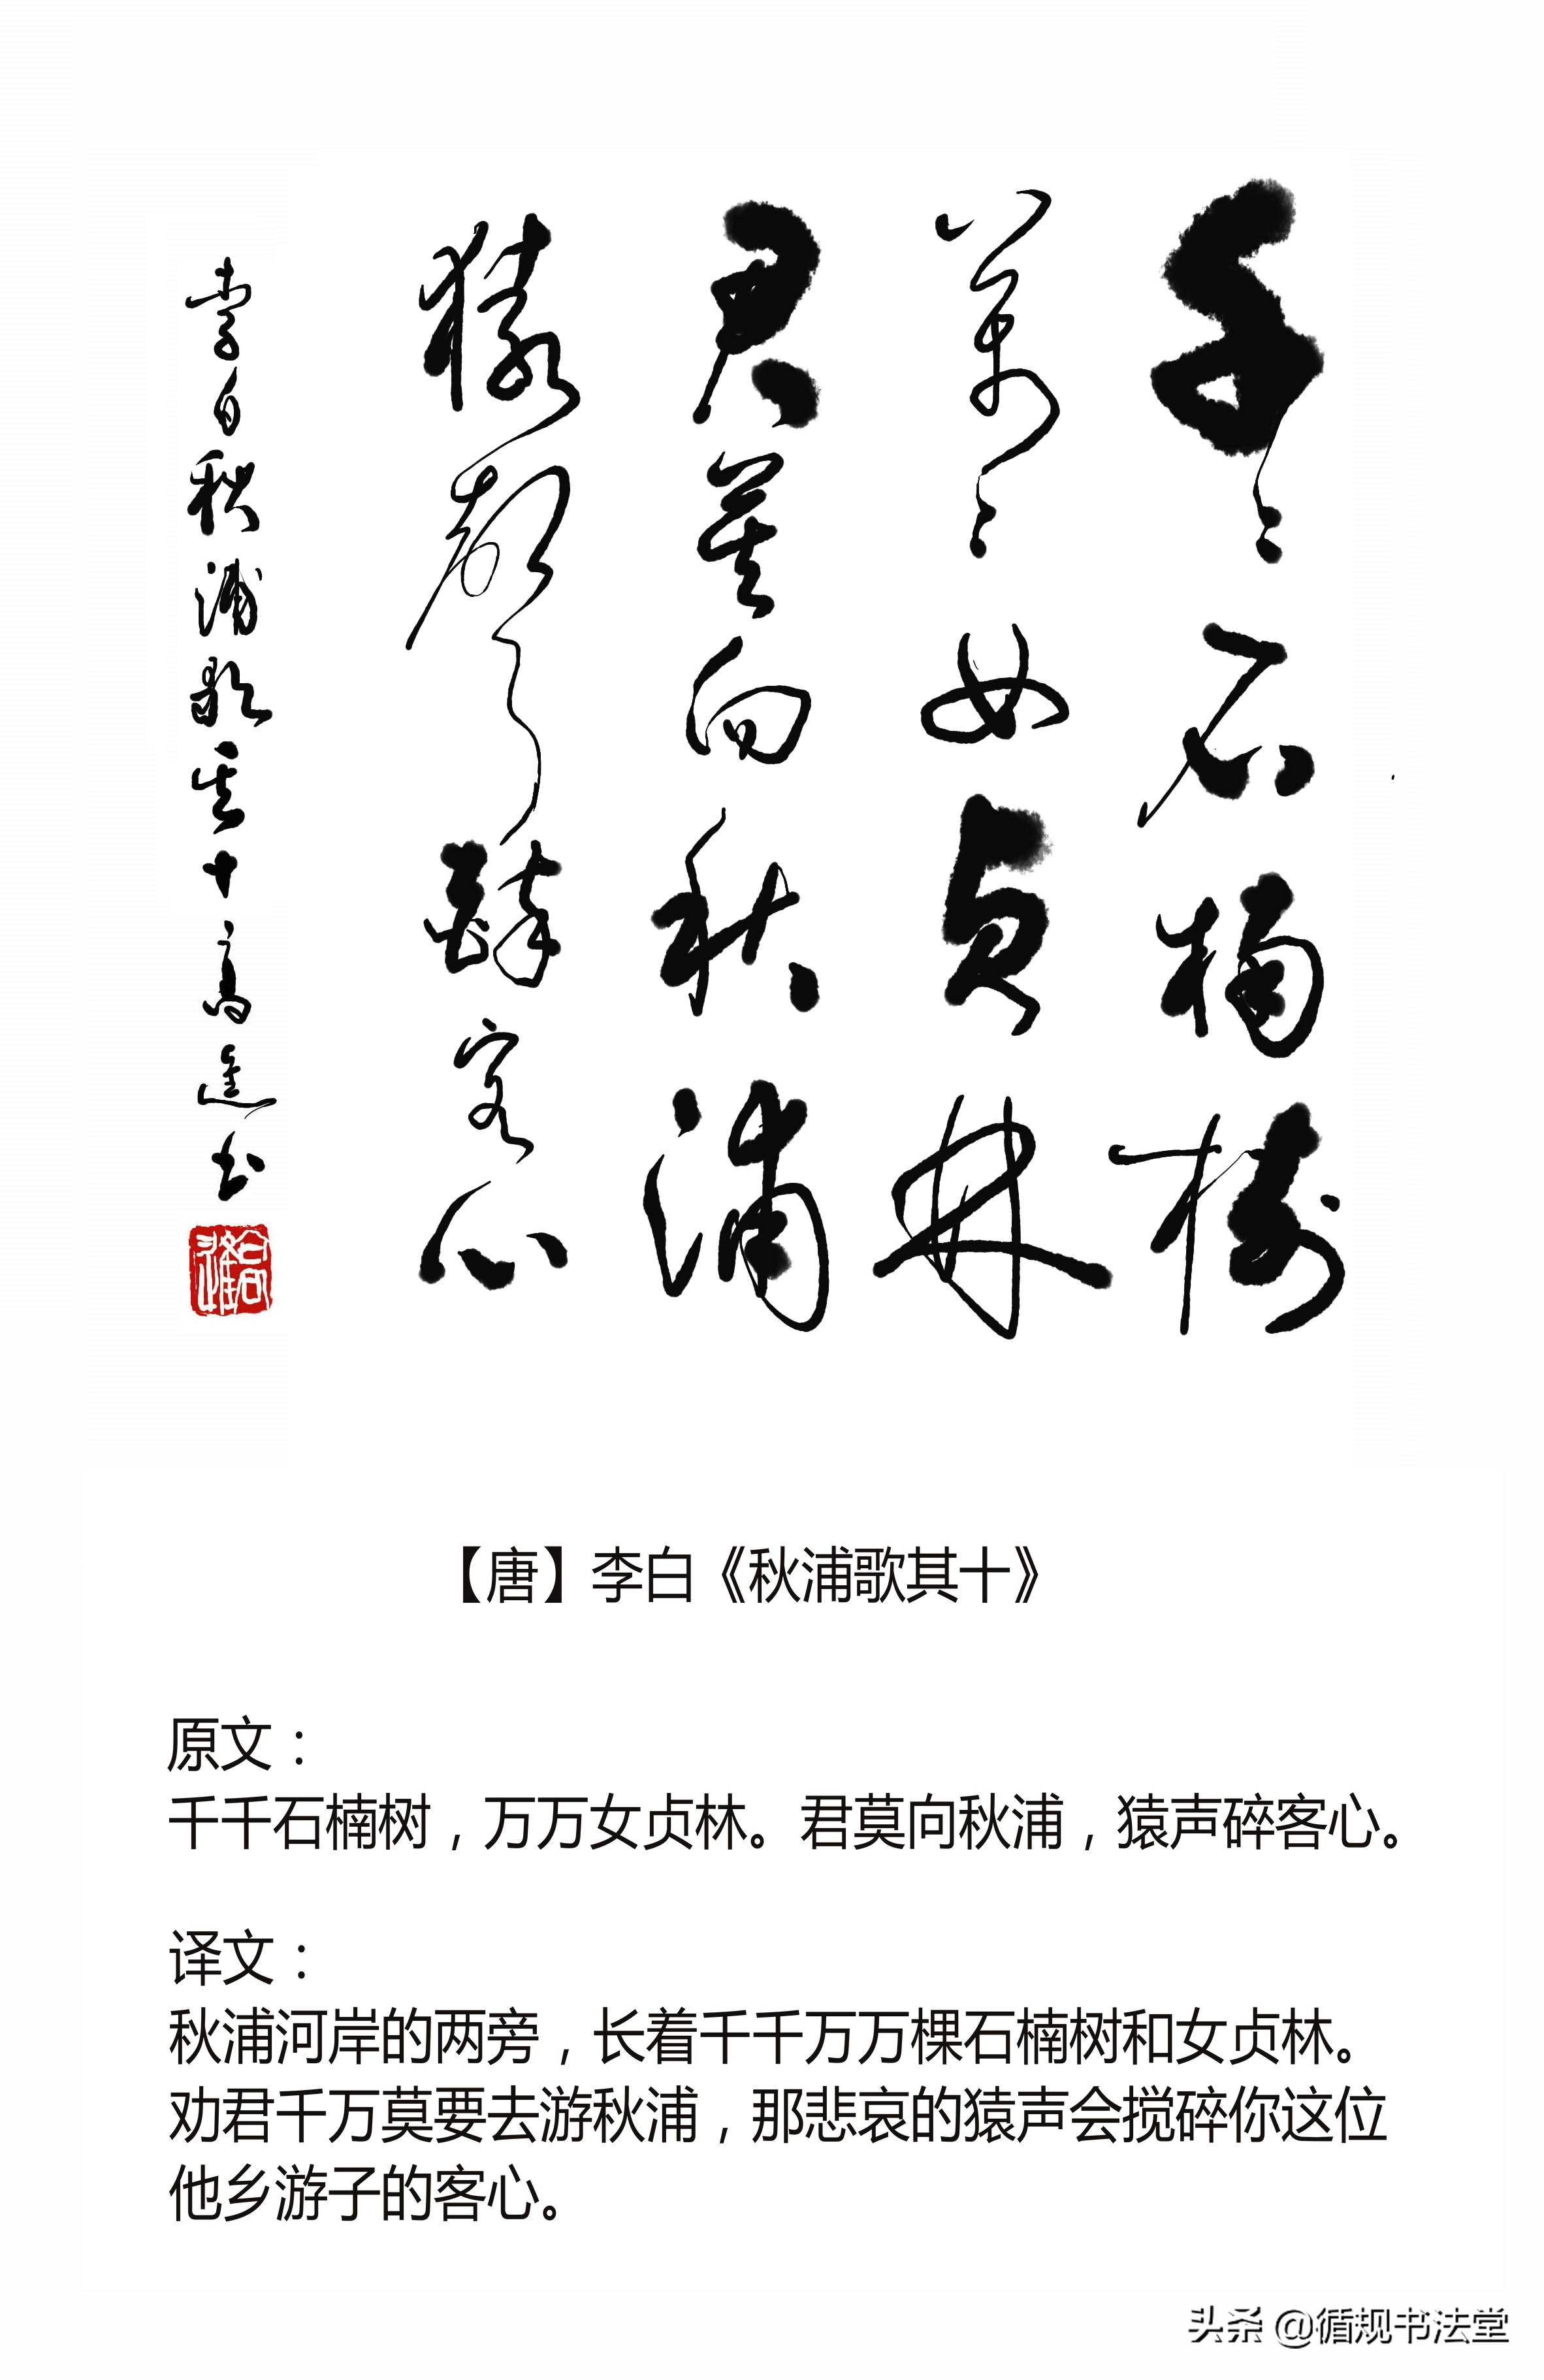 千〻石楠樹
萬〻女貞林
君莫向秋浦
猿聲碎客心
李白秋浦歌其十高進書
高進
【唐】李白《秋浦歌其十》
原文：
千千石楠树，万万女贞林。君莫向秋浦，猿声碎客心。
译文：
秋浦河岸的两旁，长着千千万万棵石楠树和女贞林。
劝君千万莫要去游秋浦，那悲哀的猿声会搅碎你这位
他乡游子的客心。
头条 @循规书法堂